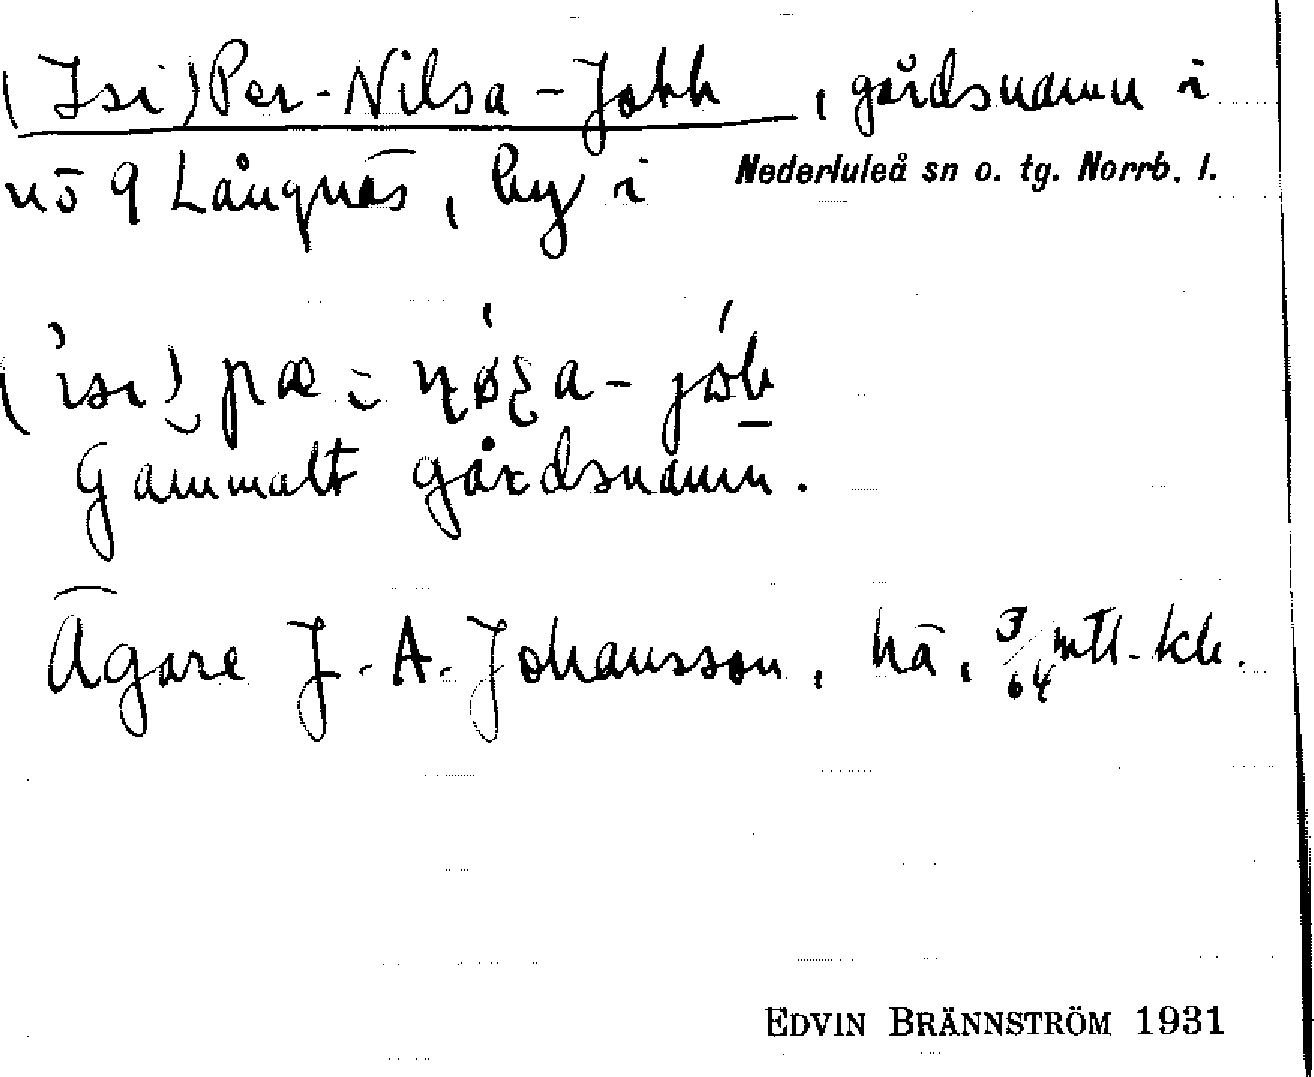 (Isi)Per-Nilsa-Jobb, gårdsnamn i
nö 9 Långnäs, by i Nederluleå sn o. tg. Norrb. l.
Gammalt gårdsnamn.
Ägare J. A. Johansson, hä, 3/64 mtl. kr.
EDVIN BRÄNNSTRÖM 1931